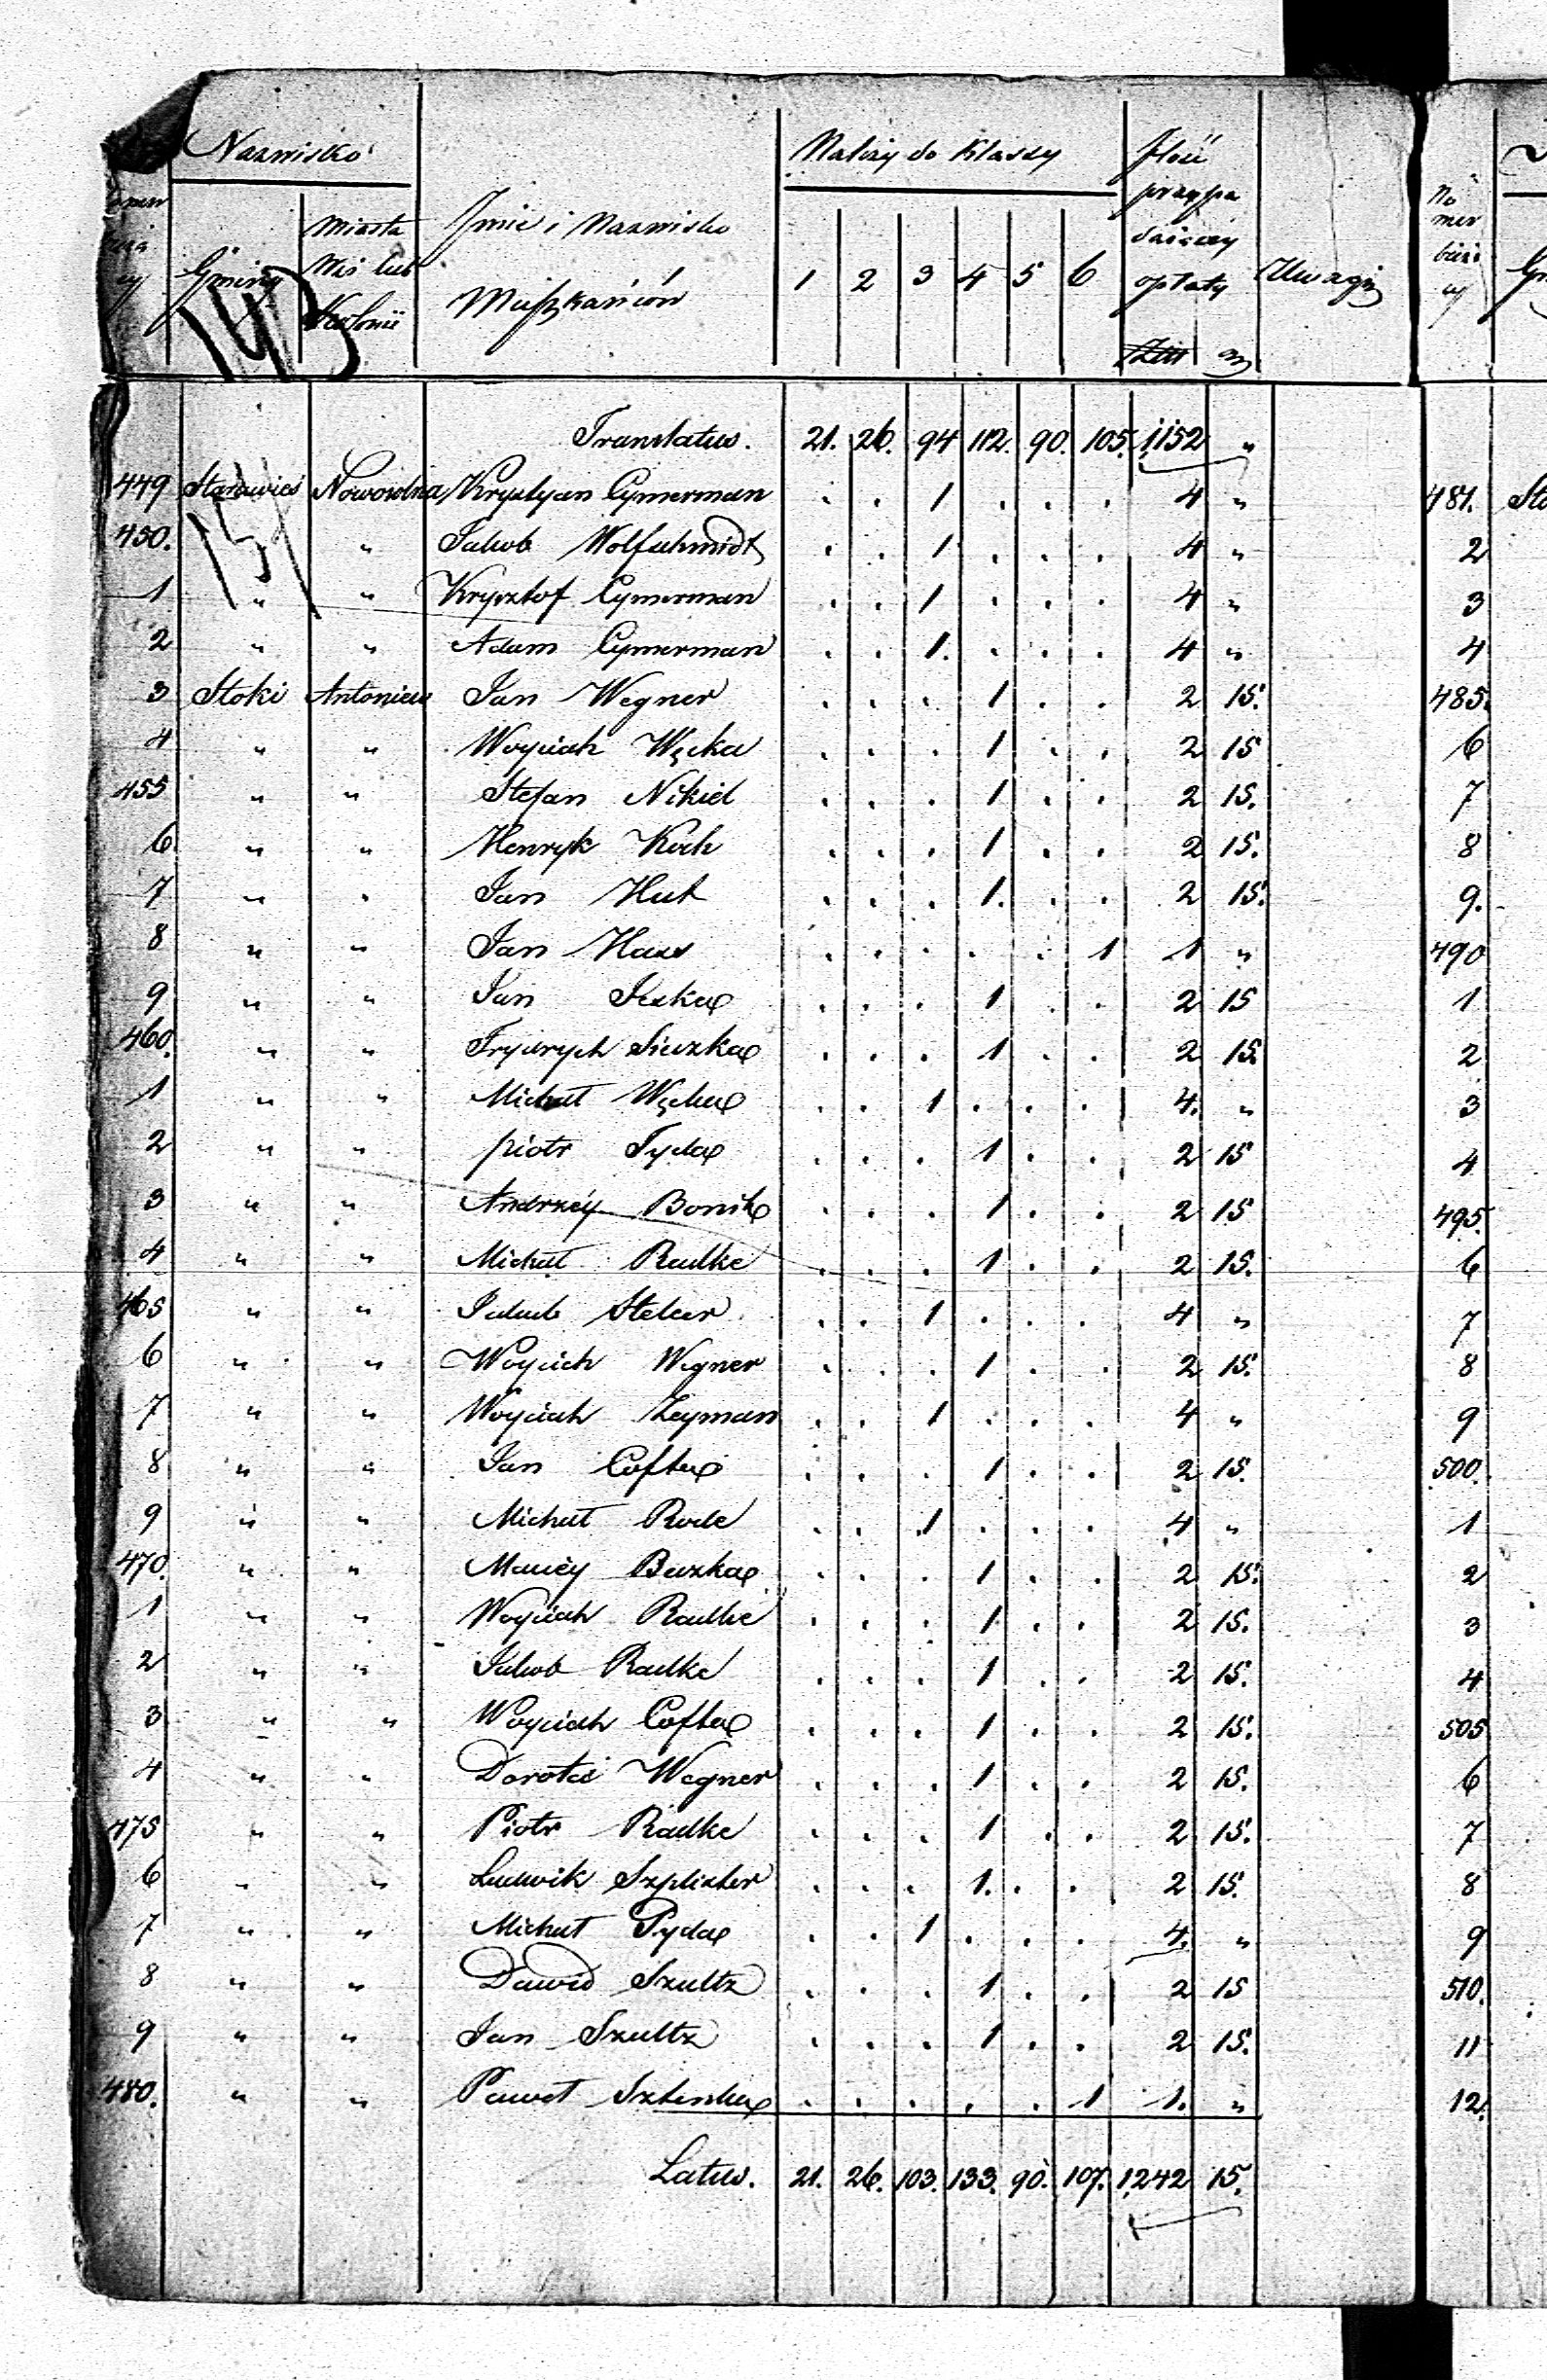 Nazwisko
Należy do Klassy
Ilość
przypa
daiącey
opłaty
Złtt gr
Gminy
Miasta
Wsi lub
Kolonii
Imie i Nazwisko
Mieszkańców
1 2 3 4 5 6
Uwagi
No
mer
bieżą
cy
143
Translatus. 21. 26. 94 112. 90. 105. 1152 "
449 Starawieś Nowosolna Krystyan Cymerman . . 1 . . . 4 " 481.
151
450. " Jakob Wolfschmidt . . 1 . . . 4 " 2
1 " " Krysztof Cymerman . . 1 . . . 4 " 3
2 " " Adam Cymerman . . 1. . . . 4 " 4
3 Stoki Antoniew Jan Wegner . . . 1 . . 2 15. 485.
4 " " Woyciech Węcka . . . 1 . . 2 15 6
455 " " Stefan Nikiel . . . 1 . . 2 15. 7
6 " " Henryk Koch . . . 1 . . 2 15. 8
7 " " Jan Hut . . . 1. . . 2 15. 9.
8 " " Jan Haas . . . . . 1 1 " 490
9 " " Jan . . . 1 . . 2 15 1
460. " " Frydrych Siuzka . . . 1 . . 2 15. 2
1 " " Michał Węcka . . 1 . . . 4. " 3
2 " " piotr Tyda . . . 1 . . 2 15 4
3 " " Andrzéy Bonik . . . 1 . . 2 15 495.
4 " " Michał Radke . . . 1 . . 2 15. 6
465 " " Jakub Stelcer . . 1 . . . 4 " 7
6 " " Woyciech Wegner . . . 1 . . 2 15. 8
7 " " Woyciech Zeyman . . 1 . . . 4 " 9
8 " " Jan Cofta . . . 1 . . 2 15. 500.
9 " " Michał Rode . . 1 . . . 4 " 1
470. " " Maciéy Buzka . . . 1 . . 2 15. 2
1 " " Woyciech Radke . . . 1 . . 2 15. 3
2 " " Jakob Radke . . . 1 . . 2 15. 4
3 " " Woyciech Cofta . . . 1 . . 2 15. 505
4 " " Dorota Wegner . . . 1 . . 2 15. 6
475 " " Piotr Radke . . . 1 . . 2 15. 7
6 " " Ludwik Szplister . . . 1. . . 2 15. 8
7 " " Michał Pyda . . 1 . . . 4. " 9
8 " " Dawid Szultz . . . 1 . . 2 15 510.
9 " " Jan Szultz . . . 1 . . 2 15. 11
480. " " Paweł Sztenka . . . . . 1 1. " 12.
Latus. 21. 26. 103. 133. 90. 107. 1242 15.